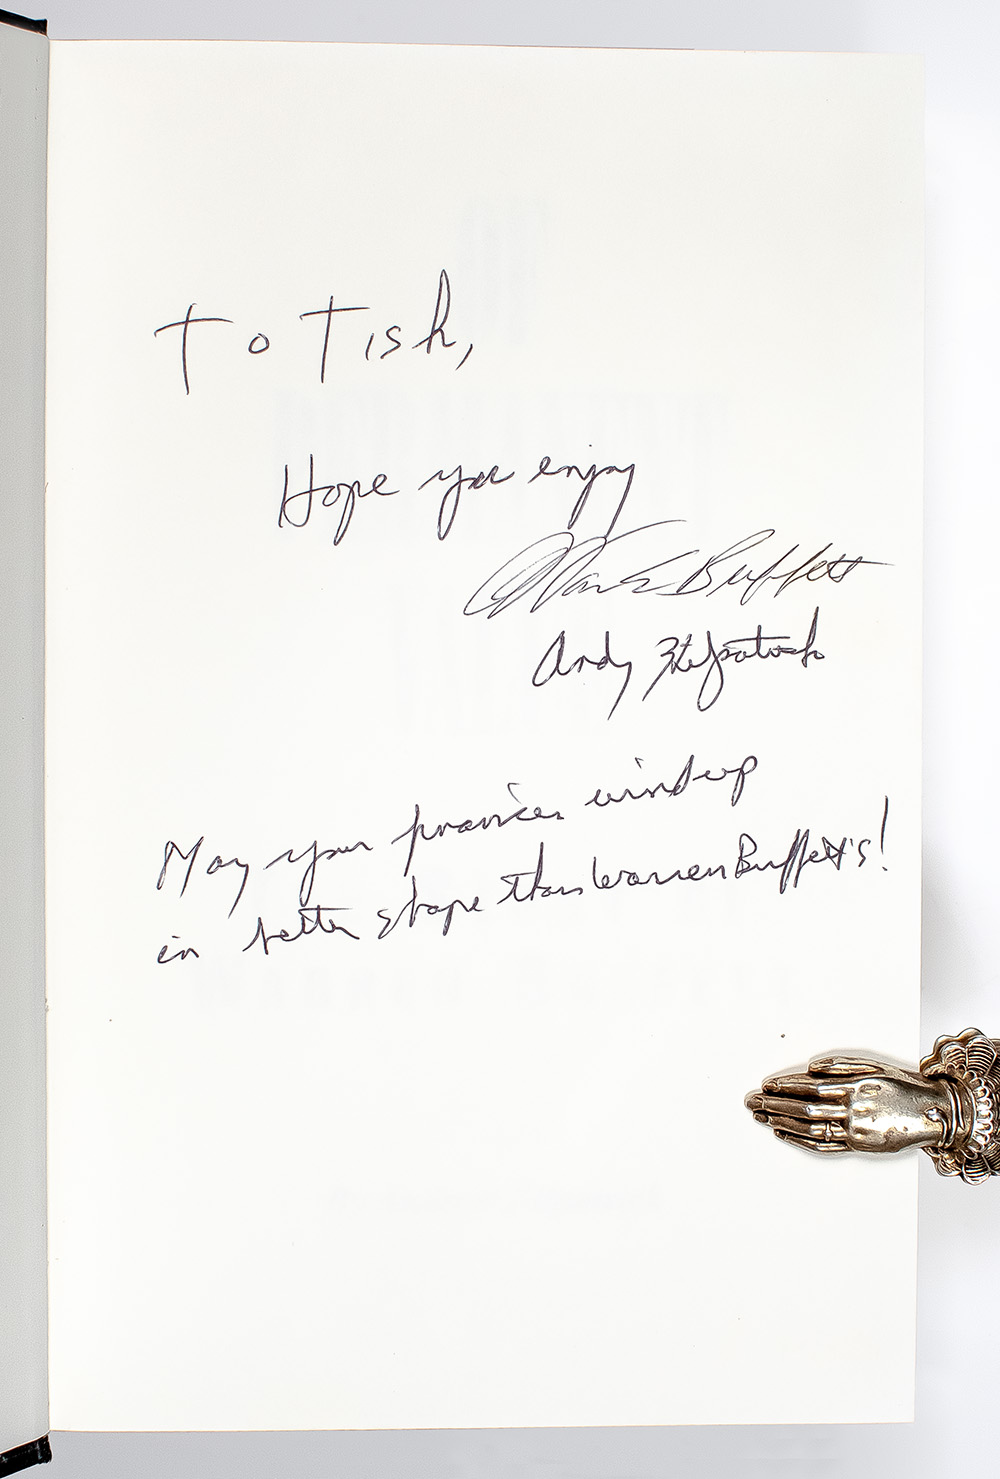 To Tish,
Hope you enjoy
Mark Buffett
Andy Kilpatrick
May your finances wind up
in better shape than Warren Buffett's!